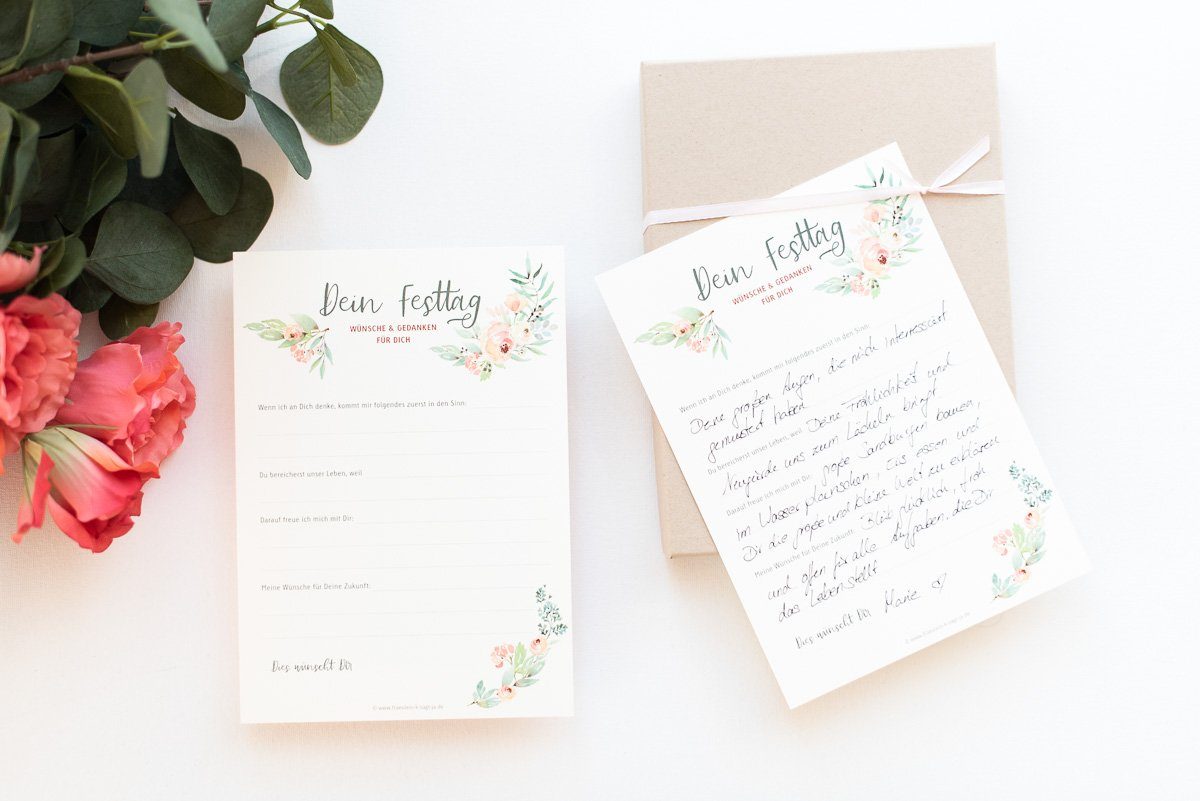 Dein Festtag
WÜNSCHE & GEDANKEN
FÜR DICH
Wenn ich an Dich denke, kommt mir folgendes zuerst in den Sinn:
Du bereicherst unser Leben, weil
Darauf freue ich mich mit Dir:
Meine Wünsche für Deine Zukunft:
Dies wünscht Dir
© www.fraeulein-k-sagt-ja.de
Dein Festtag
WÜNSCHE & GEDANKEN
FÜR DICH
Wenn ich an Dich denke, kommt mir folgendes zuerst in den Sinn:
Deine großen Augen, die mich interessiert
gemustert haben
Du bereicherst unser Leben, weil Deine Fröhlichkeit und
Neugierde uns zum Lächeln bringt.
Darauf freue ich mich mit Dir: große Sandburgen bauen,
im Wasser planschen, Eis essen und
Dir die große und kleine Welt zu erklären
Meine Wünsche für Deine Zukunft: Bleib glücklich, froh
und offen für alle Aufgaben, die Dir
das Leben stellt
Dies wünscht Dir Marie ♡
© www.fraeulein-k-sagt-ja.de